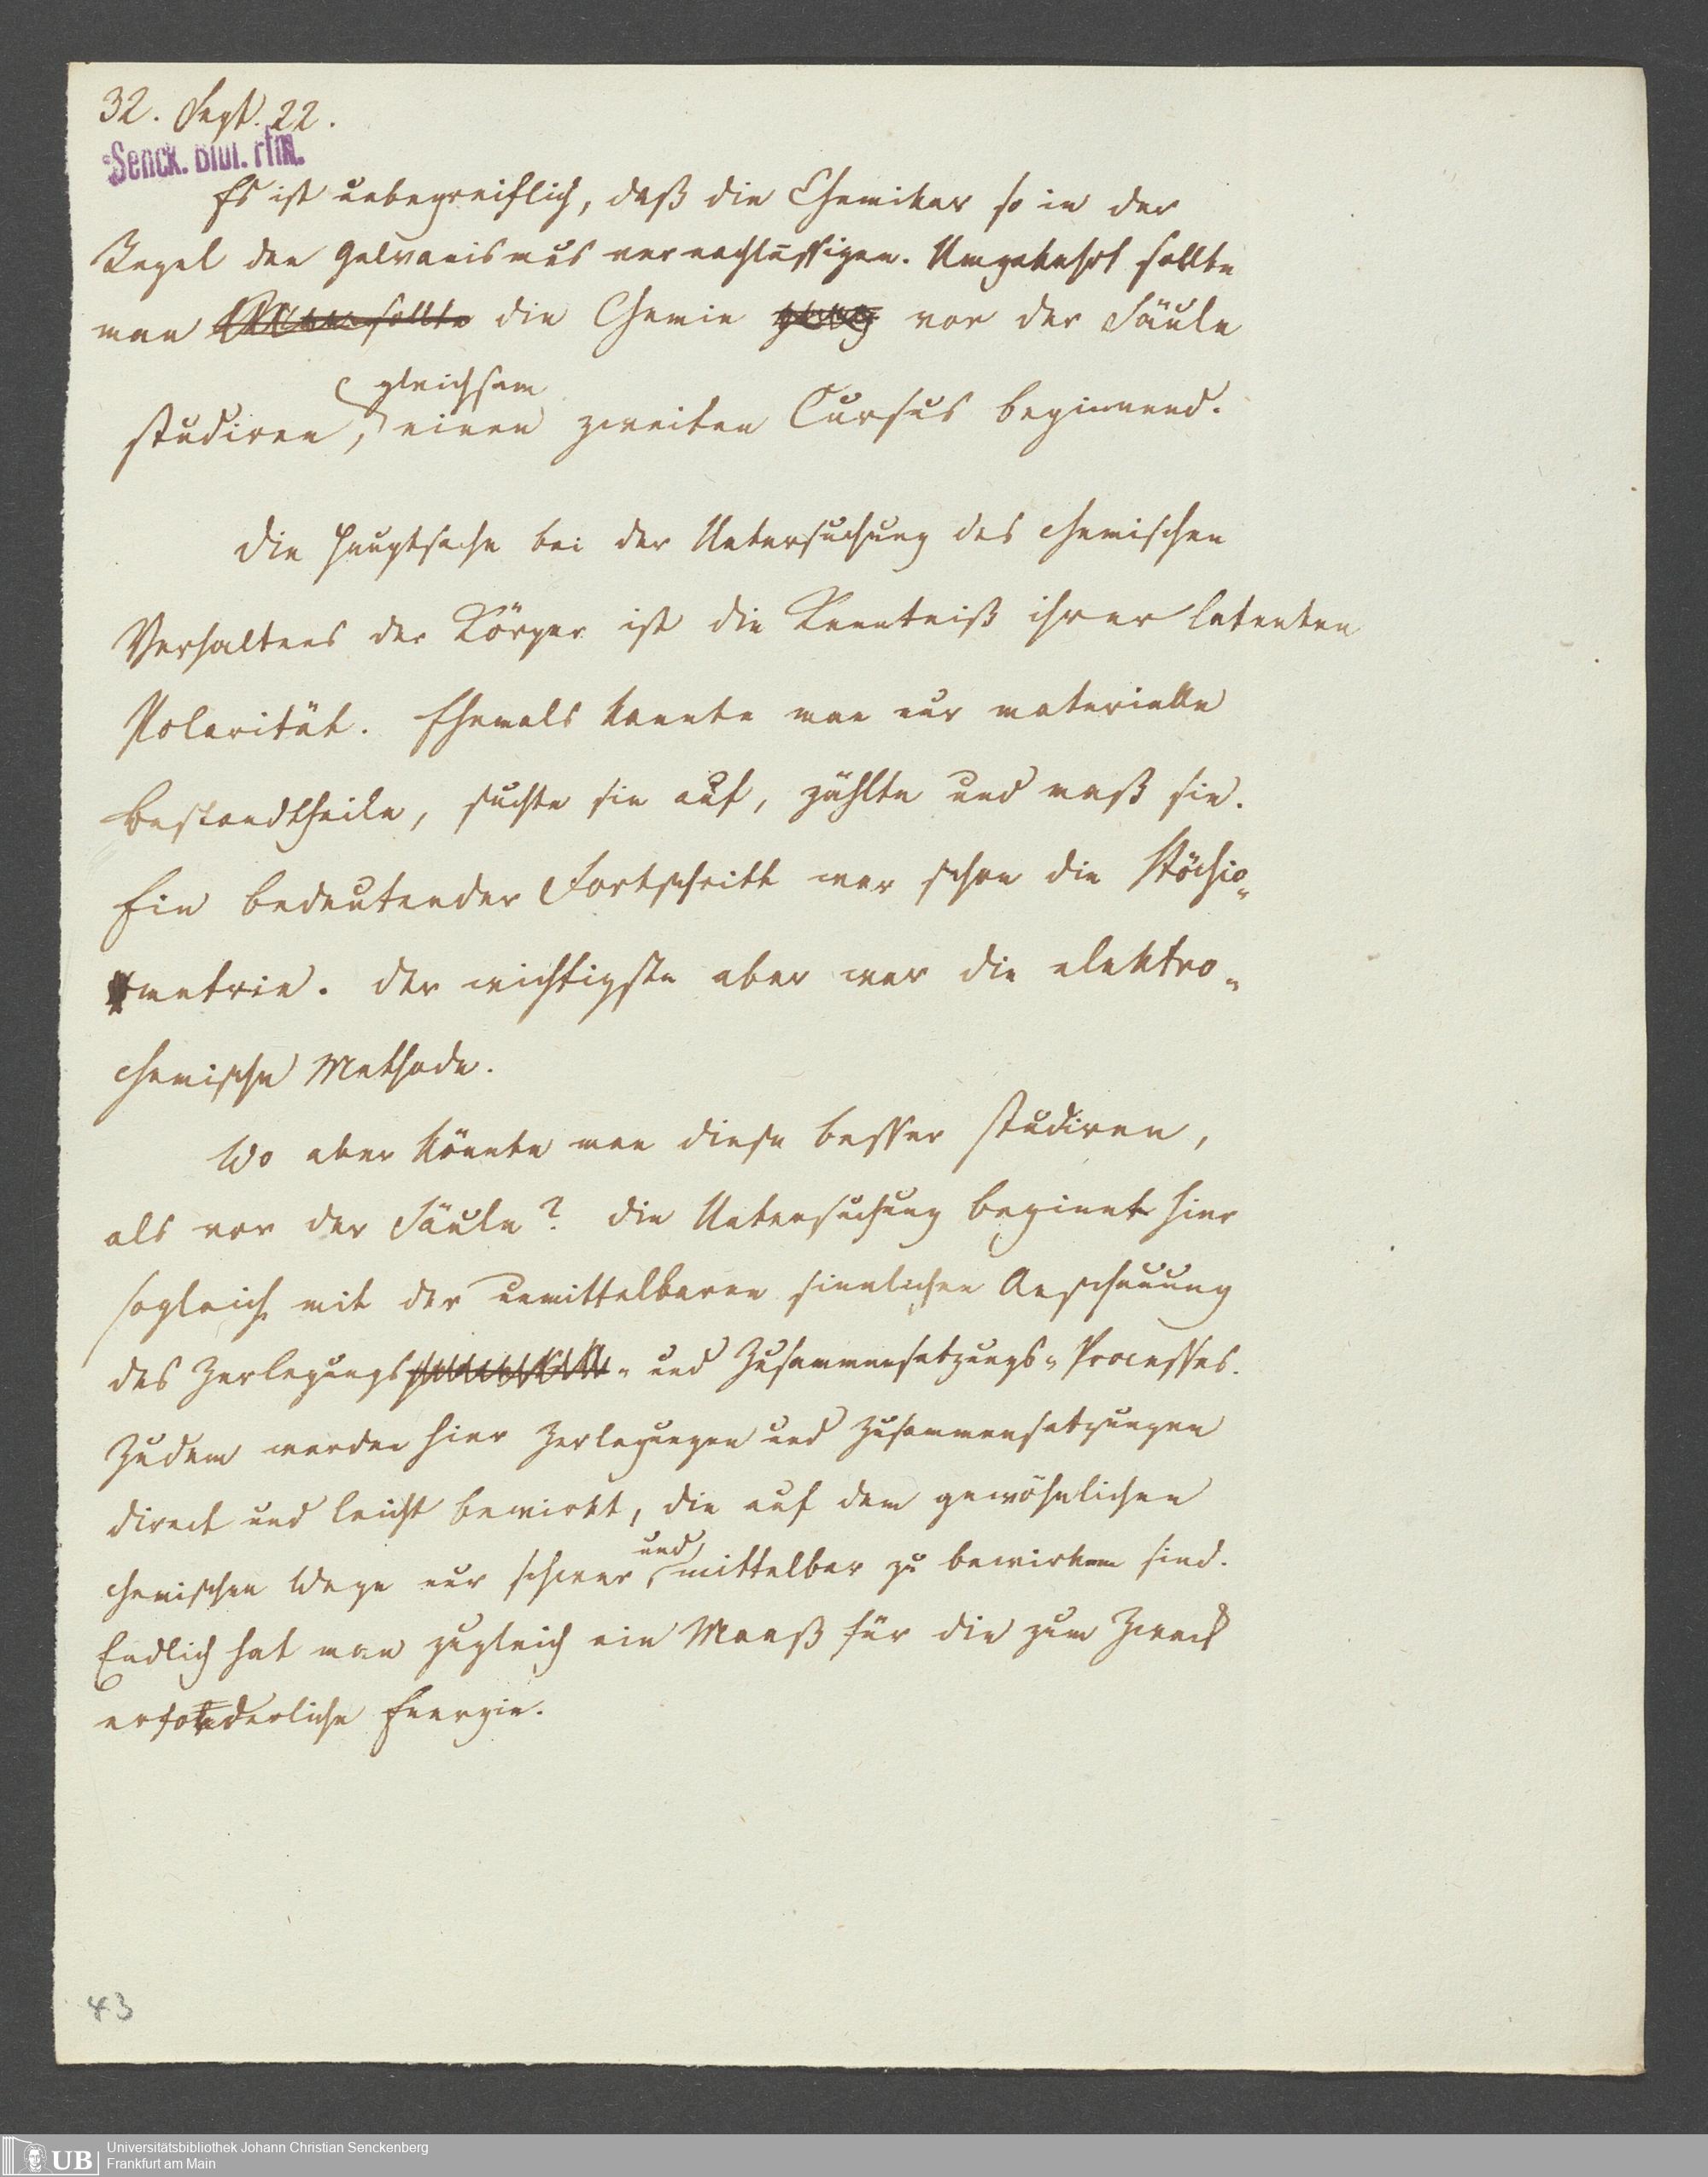 32. Sept. 22.
Senck. Bibl. Ffm.
Es ist unbegreiflich, daß die Chemiker so in der
Regel den Galvanismus vernachlässigen. Umgekehrt sollte
man Man sollte die Chemie vor der Säule
gleichsam
studiren, einen zweiten Cursus beginnend.
Die Hauptsache bei der Untersuchung des chemischen
Verhaltens der Körper ist die Kenntniß ihrer latenten
Polarität. Ehemals kannte man nur materielle
Bestandtheile, suchte sie auf, zählte und maß sie.
Ein bedeutender Fortschritt war schon die Stöchio-
metrie. Der wichtigste aber war die elektro-
chemische Methode.
Wo aber könnte man diese besser studiren,
als vor der Säule? Die Untersuchung beginnt hier
sogleich mit der unmittelbaren sinnlichen Anschauung
des Zerlegungs- und Zusammensetzungs-Processes.
Zudem werden hier Zerlegungen und Zusammensetzungen
direct und leicht bewirkt, die auf dem gewöhnlichen
und
chemischen Wege nur schwer mittelbar zu bewirken sind.
Endlich hat man zugleich ein Maaß für die zum Zweck
erforderliche Energie.
43
UB Universitätsbibliothek Johann Christian Senckenberg
Frankfurt am Main